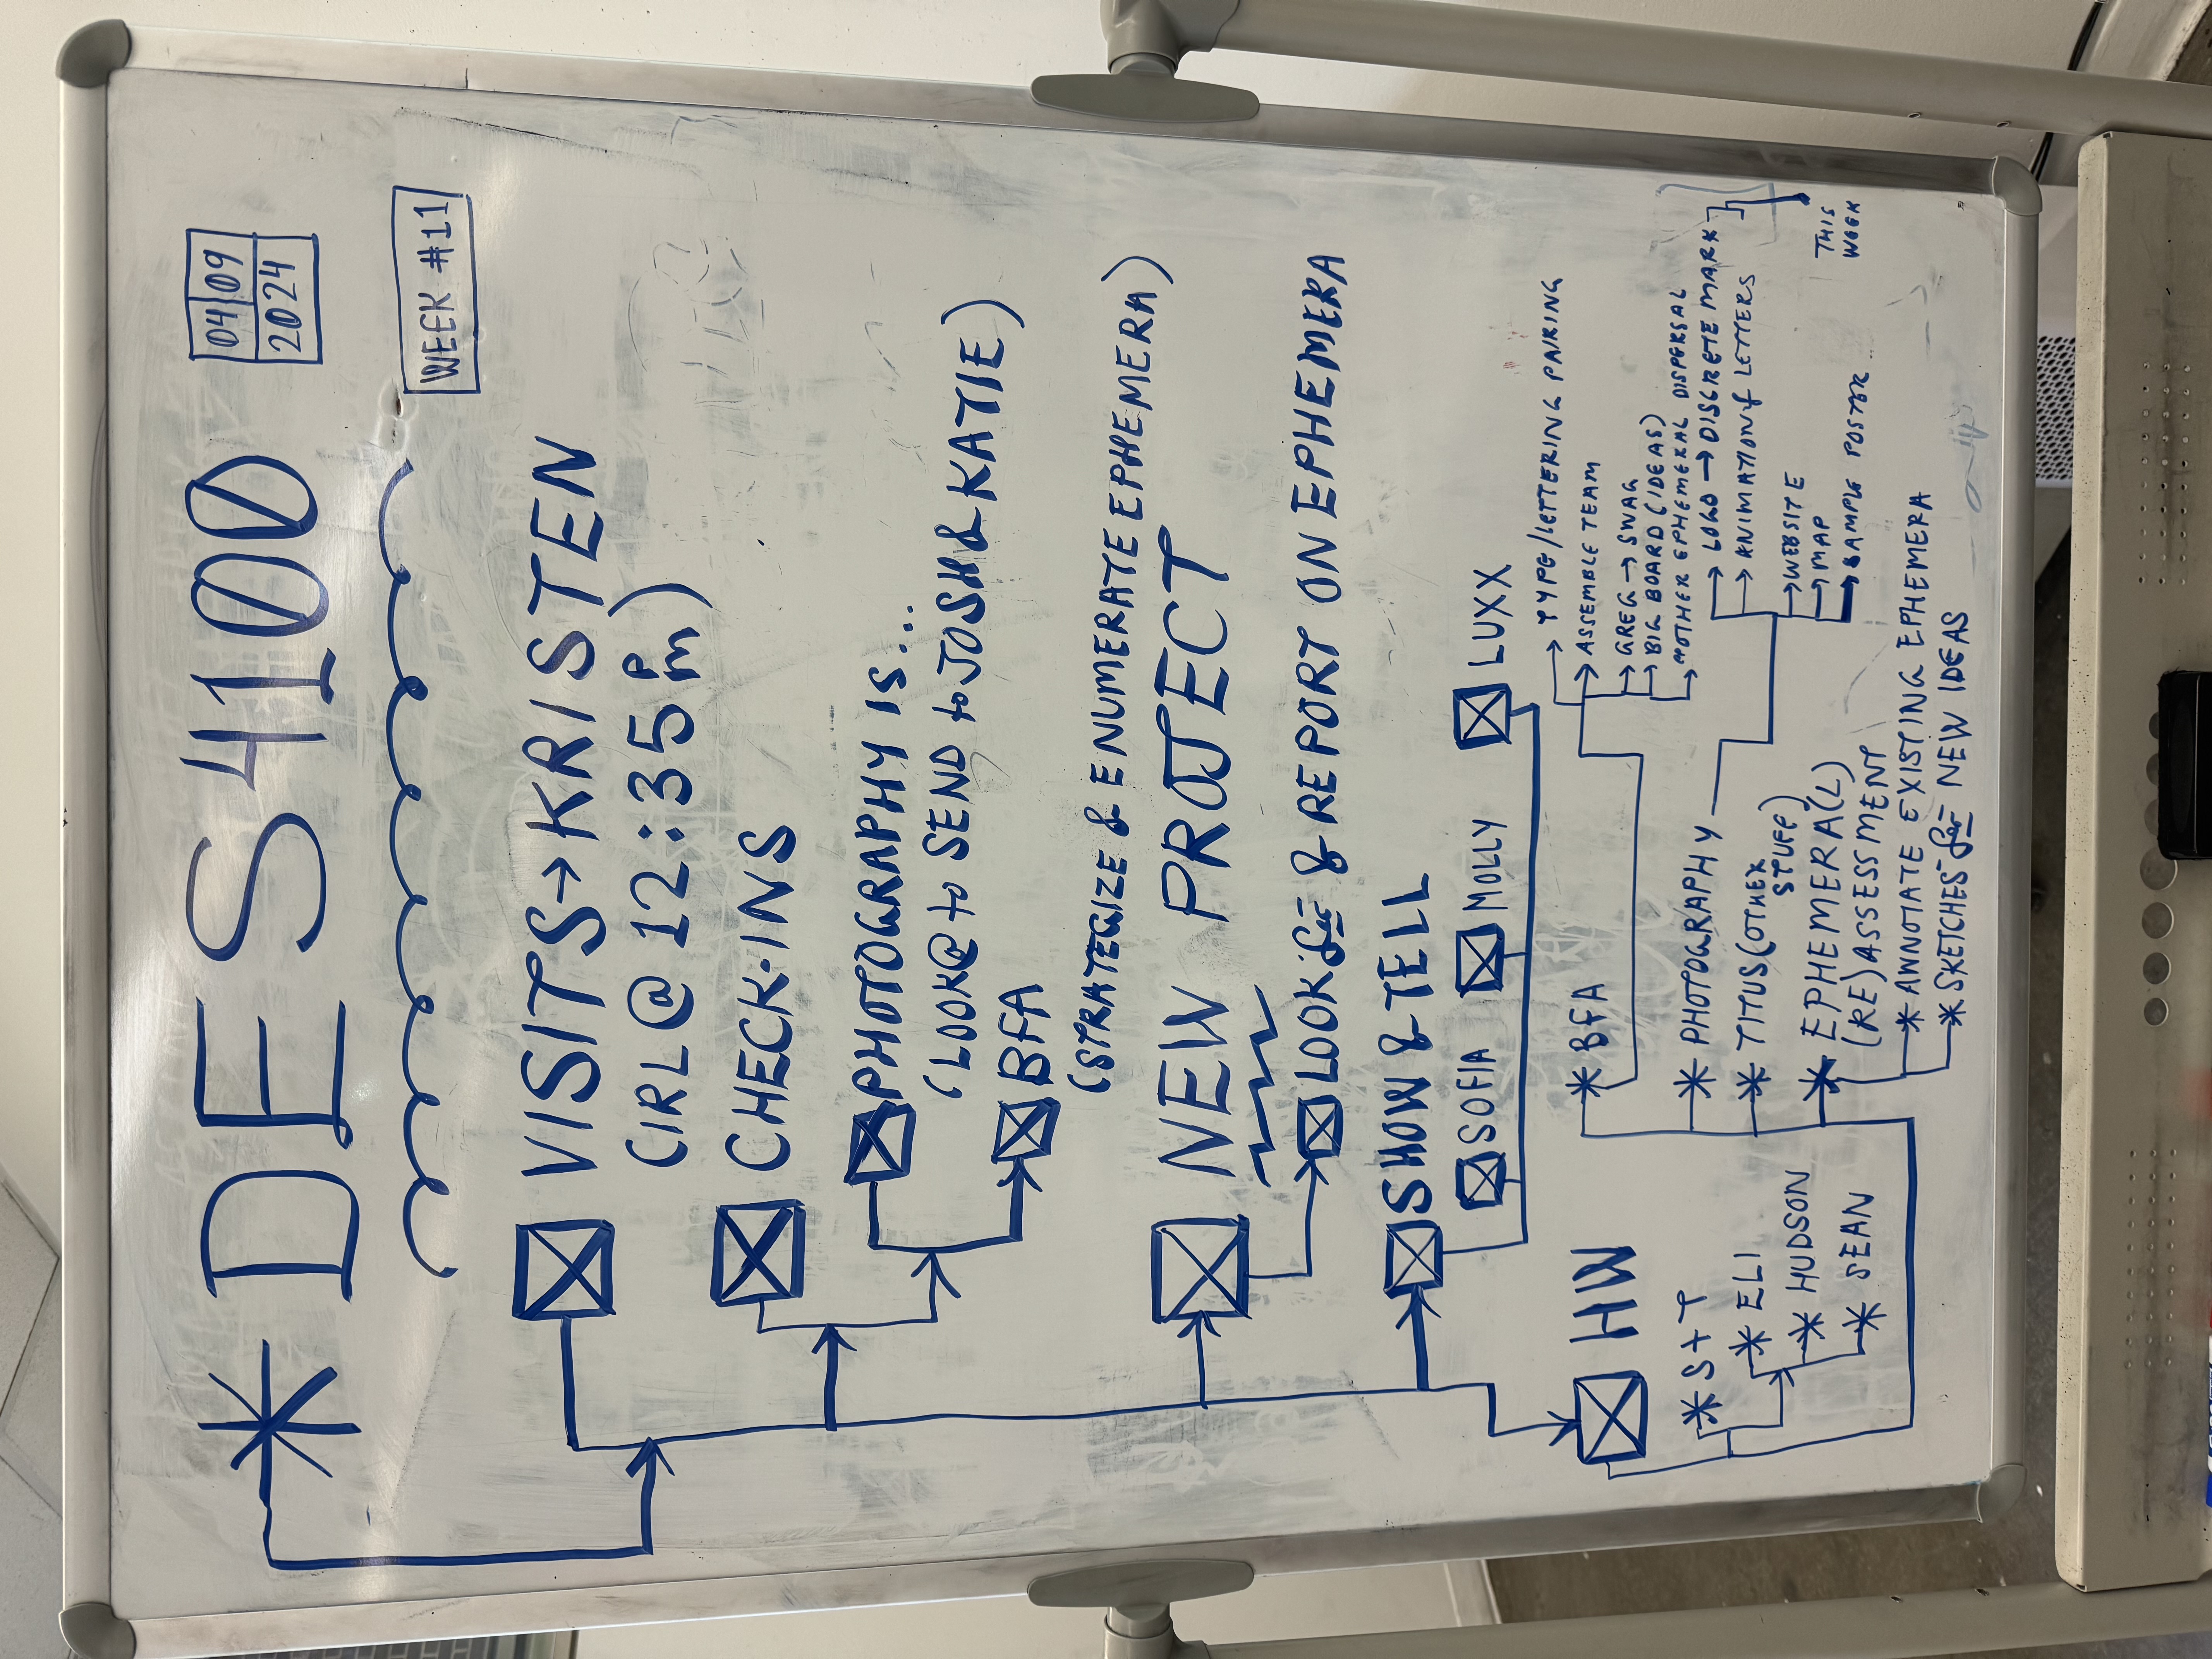 * DES 4100
04 09
2024
WEEK #11
VISITS → KRISTEN
(IRL @ 12:35 PM)
CHECK-INS
PHOTOGRAPHY IS...
(LOOK @ to SEND to JOSH & KATIE)
BFA
(STRATEGIZE & ENUMERATE EPHEMERA)
NEW PROJECT
LOOK for & REPORT ON EPHEMERA
SHOW & TELL
SOFIA MOLLY LUXX
HW
* S+T
* ELI
* HUDSON
* SEAN
* BFA
→ TYPE/LETTERING PAIRING
→ ASSEMBLE TEAM
→ GREG → SWAG
→ BIG BOARD (IDEAS)
→ OTHER EPHEMERAL DISPERSAL
* PHOTOGRAPHY
→ LOGO → DISCRETE MARK
→ ANIMATION of LETTERS
→ WEBSITE
→ MAP
→ SAMPLE POSTER
THIS
WEEK
* TITUS (OTHER
STUFF)
* EPHEMERA(L)
(RE)ASSESSMENT
* ANNOTATE EXISTING EPHEMERA
* SKETCHES for NEW IDEAS